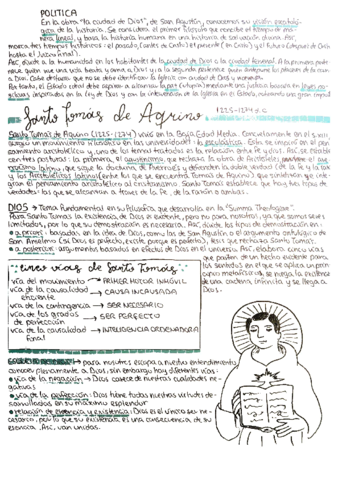 POLITICA
En la obra "la ciudad de Dios", de San Agustín, conocemos su visión escatológica
de la historia. Se considera el primer filósofo que concibe el tiempo de manera
lineal, y para la historia humana es una historia de salvación divina. Así,
marca tres tiempos históricos: el pasado (antes de Cristo) el presente (en Cristo) y el futuro (después de Cristo
hasta el Juicio final).
Así, divide a la humanidad en los habitantes de la ciudad de Dios o la ciudad terrenal. A la primera pertenece
quien vive una vida beata y ama a Dios y a la segunda pertenece quien antepone los placeres de la carne
a Dios. Cabe destacar que no se debe identificar la Iglesia con ciudad de Dios y viceversa.
Por tanto, el Estado ideal debe aspirar a alcanzar la paz (utopía) mediante una justicia basada en leyes
inspiradas en la ley de Dios y con la intervención de la Iglesia en el Estado,
Santo Tomás de Aquino
1225-1274 d.C
Santo Tomás de Aquino (1225-1274) vivió en la Baja Edad Media. Concretamente en el s.XIII,
surgió un movimiento filosófico en las universidades: la escolástica. Esta se inspiró en el pensamiento
aristotélico y uno de los temas tratados es la conexión entre fe y razón. Así se encuentran
tres posturas: la primera, el agustinismo, que rechaza las obras de Aristóteles, el averroísmo
latino, que sigue la doctrina de Averroes y defiende la doble verdad (de la fe y la razón)
y los Aristotélicos latinos (entre los que se encuentra Tomás de Aquino) que sintetizan que integran
el pensamiento aristotélico al cristianismo. Santo Tomás establece que hay tres tipos de
verdades: los que se alcanzan a través de la fe, de la razón o ambas.
DIOS → Tema fundamental en su filosofía que desarrolla en la "Summa Theologiae".
Para Santo Tomás la existencia de Dios es evidente, pero no para nosotros, ya que somos seres
limitados, por lo que su demostración es necesaria. Así, divide los tipos de demostración en:
• a priori: basados en la idea de Dios, como los de San Agustín, o el argumento ontológico de
San Anselmo (si Dios es perfecto, existe, porque es perfecto), esto que rechaza Santo Tomás.
• a posteriori: argumentos basados en efectos de Dios en el universo. Así, elabora cinco vías
que parten de un hecho evidente para
los sentidos en el que se aplica un principio
metafísico, se niega la existencia
de una cadena infinita y se llega a
Dios.
cinco vías de Santo Tomás
vía del movimiento → PRIMER MOTOR INMÓVIL
vía de la causalidad → CAUSA INCAUSADA
eficiente
vía de la contingencia → SER NECESARIO
vía de los grados → SER PERFECTO
de perfección
vía de la causalidad → INTELIGENCIA ORDENADORA
final
→ para nosotros escapa a nuestro entendimiento
conocer plenamente a Dios, sin embargo hay diferentes vías:
• vía de la negación → Dios carece de nuestras cualidades negativas
• vía de la perfección: Dios tiene todas nuestras virtudes desarrolladas
en su máximo esplendor
• relación de esencia y existencia: Dios es el único ser necesario,
por lo que su existencia es una consecuencia de su
esencia. Así, van unidas.